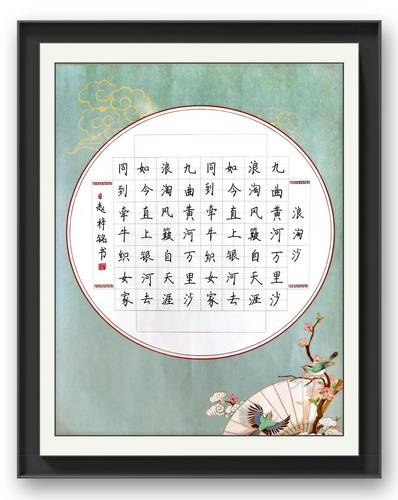 浪淘沙
九曲黄河万里沙
浪淘风簸自天涯
如今直上银河去
同到牵牛织女家
九曲黄河万里沙
浪淘风簸自天涯
如今直上银河去
同到牵牛织女家
赵梓铭书